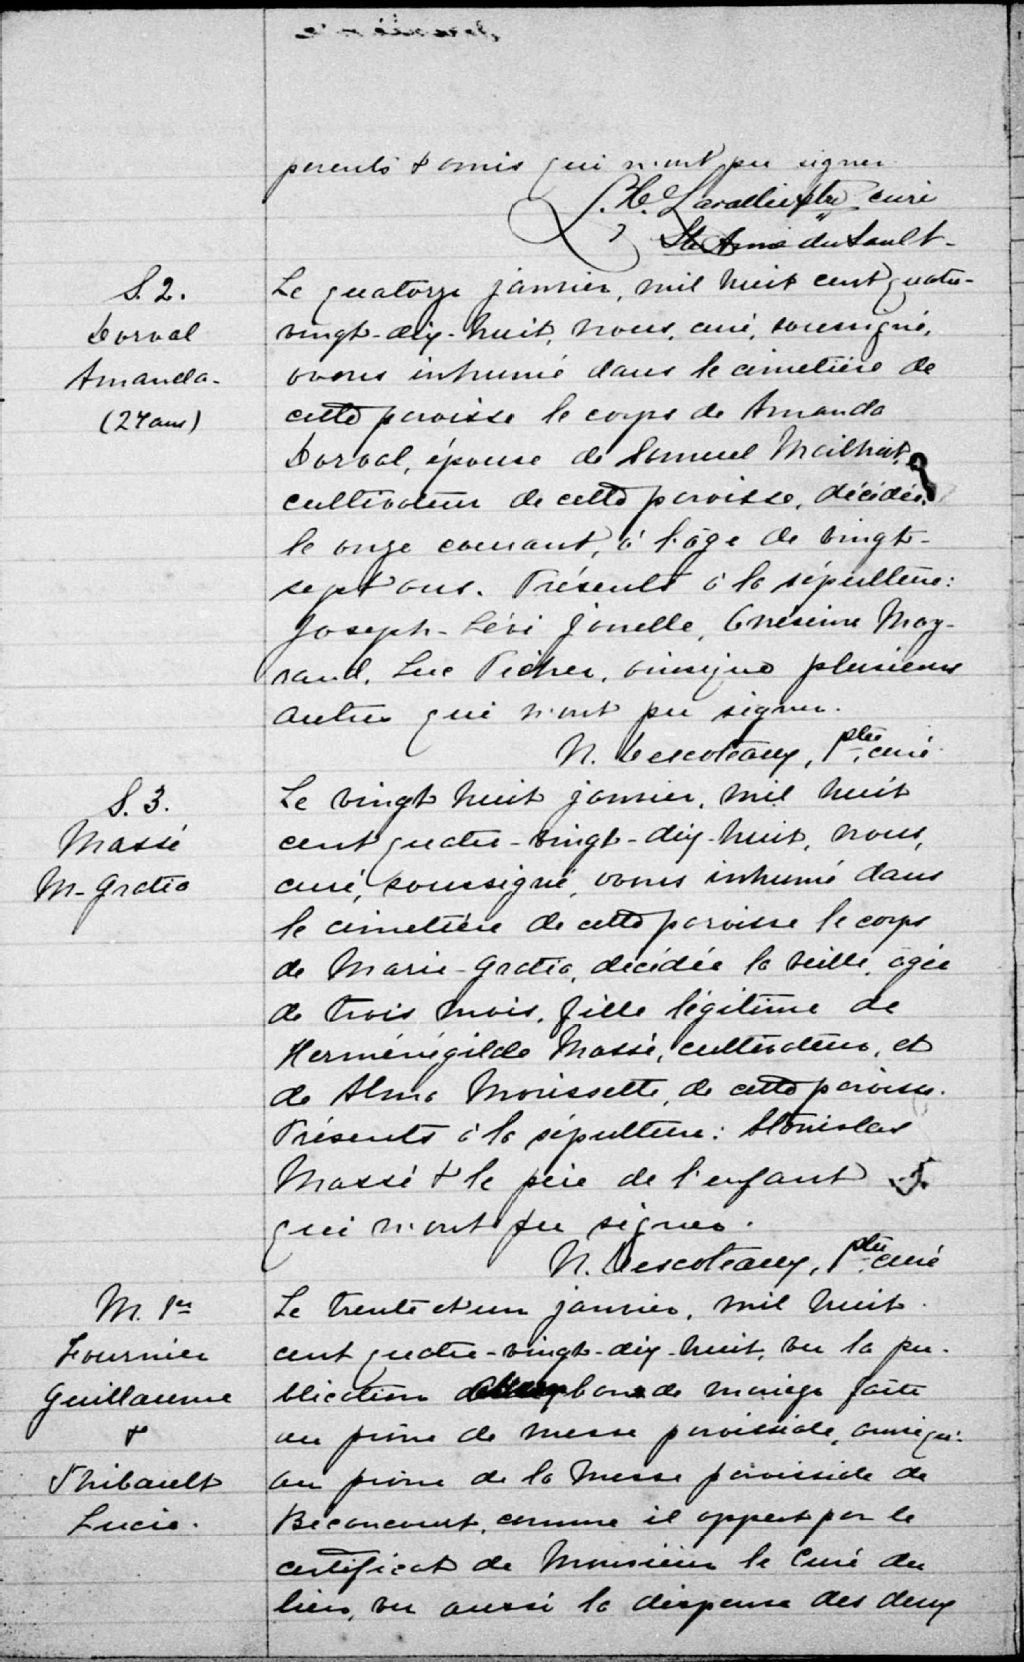 parents & amis qui n'ont pu signer
L. H. Lavallée ptre curé
Ste Anne du Sault-
S. 2.
Dorval
Amanda.
(27 ans)
Le quatorze janvier, mil huit cent quatre-
vingt-dix-huit, nous, curé, soussigné,
avons inhumé dans le cimetière de
cette paroisse le corps de Amanda
Dorval, épouse de Samuel Mailhot,
cultivateur de cette paroisse, décédée
le onze courant, à l'âge de vingt-
sept ans. Présents à la sépulture:
Joseph-Lévi Jonelle, Onésime May-
rand, Luc Picher, ainsique plusieurs
autres qui n'ont pu signer.
N. Descoteaux, Ptre, curé
S. 3.
Massé
M-Gratia
Le vingt huit janvier, mil huit
cent quatre-vingt-dix-huit, nous,
curé, soussigné, avons inhumé dans
le cimetière de cette paroisse le corps
de Marie-Gratia, décédée la veille, âgée
de trois mois, fille légitime de
Herménégilde Massé, cultivateur, et
de Alma Morissette, de cette paroisse.
Présents à la sépulture: Stanislas
Massé & le père de l'enfant
qui n'ont pu signer.
N. Descoteaux, Ptre, curé
M. 1er
Fournier
Guillaume
&
Thibault
Lucie.
Le trente et un janvier, mil huit
cent quatre-vingt-dix-huit, vu la pu-
blication ban de mariage faite
au prône de messe paroissiale, ainsiqu'
au prône de la messe paroissiale de
Bécancourt, comme il appert par le
certificat de Monsieur le Curé du
lieu, vu aussi la dispense des deux